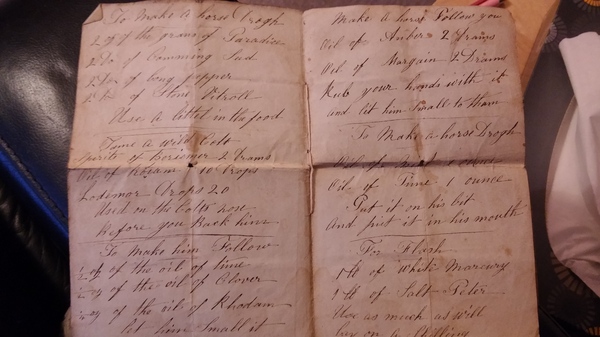 To Make a horse Drogh
2 oz of the grains of Paradice
2 Do of Cumming Sead
2 Do of long pepper
2 Do of Stone Petroll
Use a littel in the food
Tame a wild Colt
Spirits of 2 Drams
Oil of 10 Drops
Drops 20
Used on the Colts nose
before you Back him
To Make him Follow
½ oz of the oil of time
½ oz of the oil of Clover
¼ oz of the oil of Rhodam
let him Small it
Make a horse Follow you
Oil of Amber 2 Drams
Oil of Margain 2 Drams
Rub your hands with it
and let him Small to them
To Make a horse Drogh
Oil of 1 ounce
Oil of Time 1 ounce
Put it on his bit
And put it in his mouth
For
1 lb of White Marcury
1 lb of Salt Peter
Use as much as will
lay on a Shilling